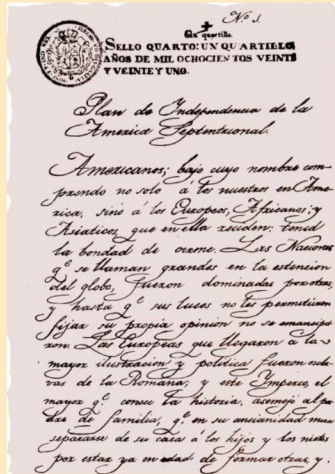 Nº 1.
Un quartillo
SELLO QUARTO: UN QUARTILLO
AÑOS DE MIL OCHOCIENTOS VEINTE
Y VEINTE Y UNO.
Plan de Independencia de la
America Septentrional.
Americanos; bajo cuyo nombre com-
prendo no solo á los nuestros en Ame-
rica, sino á los Europeos, Africanos, y
Asiaticos, que en ella reciden: tened
la bondad de oirme. Las Naciones
q.e se llaman grandes en la estencion
del globo, fueron dominadas por otras,
y hasta q.e sus luces no les permitieron
fijar su propia opinion no se emancipa-
ron. Las Europeas que llegaron á la
mayor ilustracion y politica fueron escla-
vas de la Romana; y este Imperio, el
mayor q.e conoce la historia, asemejó al pa-
dre de familia, q.e en su ancianidad mira
separarse de su casa á los hijos y los nietos
por estar ya en edad de formar otras, y